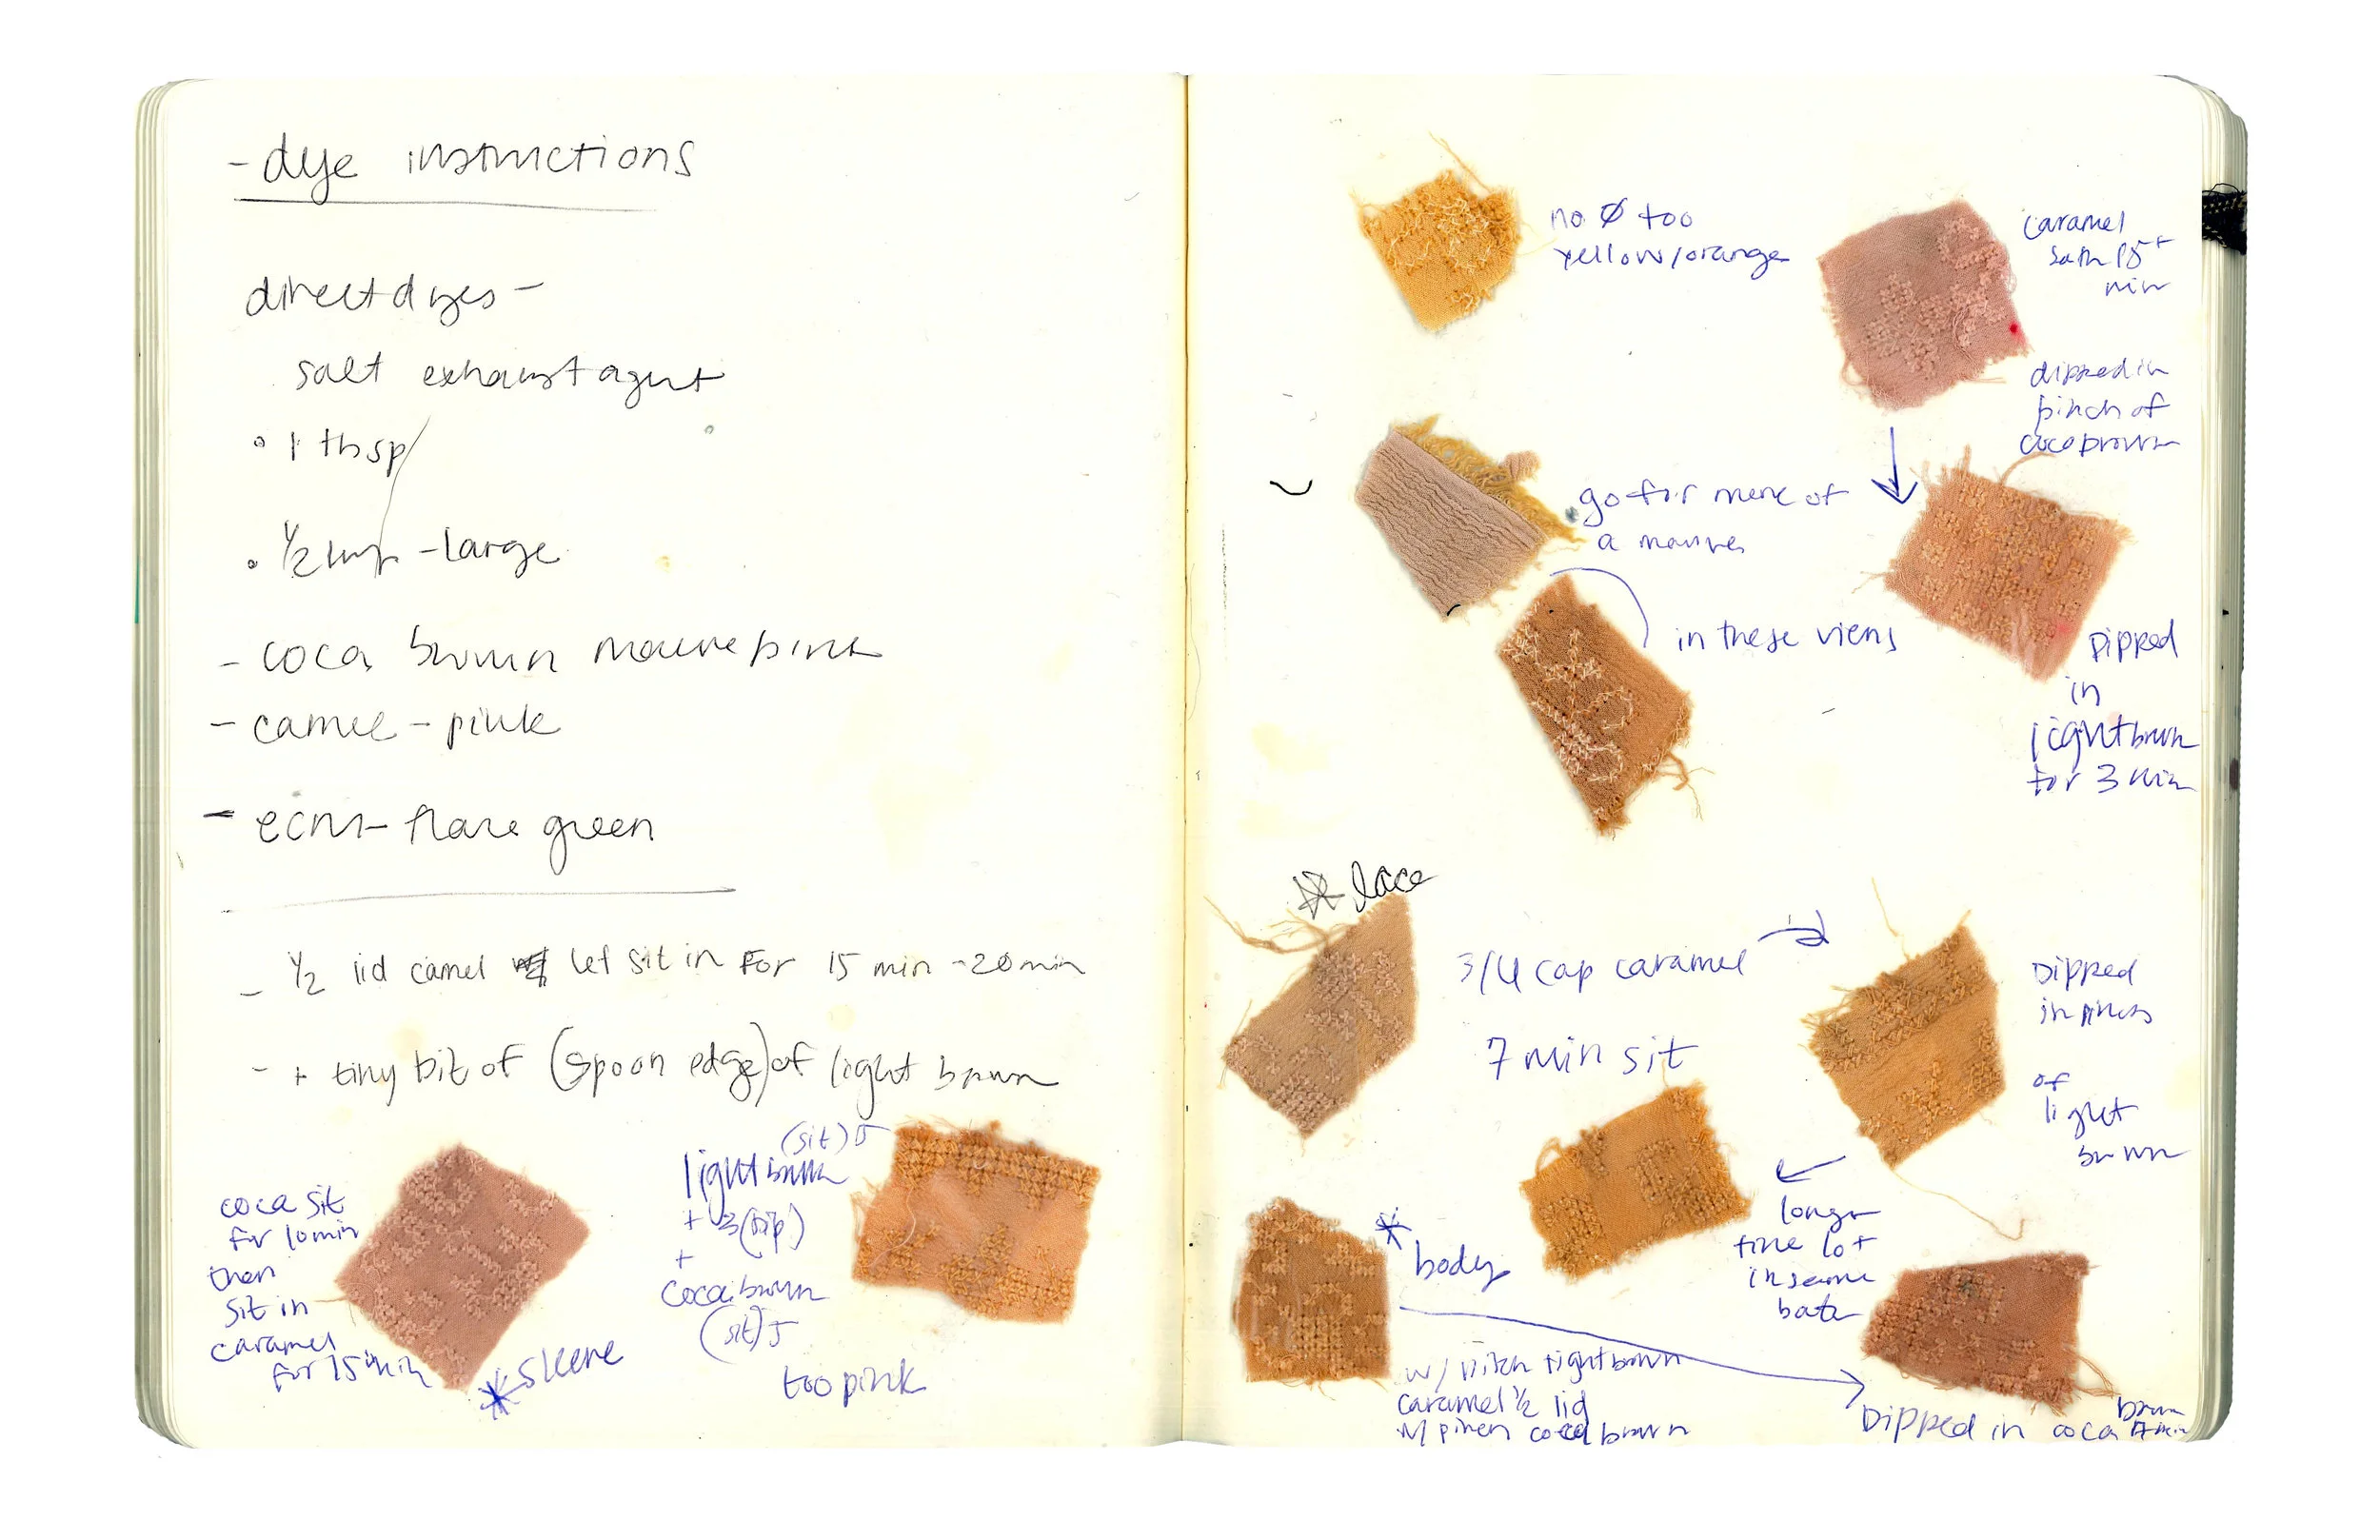 - dye instructions
direct dyes -
salt exhaust agent
• 1 tbsp
• 1/2 cup - large
- coca brown mauve pink
- camel - pink
- ecru - flare green
- 1/2 lid camel let sit in for 15 min - 20 min
- + tiny bit of (spoon edge) of light brown
coca sit
for 10 min
then
sit in
caramel
for 15 min
* sleeve
(sit) 5
light brown
+ 3 (dip)
+
coca brown
(sit) 5
too pink
no Ø too
yellow/orange
caramel
15+
min
dipped in
pinch of
coco brown
go for more of
a mauve
in these views
Dipped
in
light brown
for 3 min
* lace
3/4 cap caramel
7 min sit
Dipped
in pinch
of
light
brown
longer
time
in same
bath
* body
w/ pinch light brown
caramel 1/2 lid
w/ pinch coca brown
Dipped in coca brown
7 min